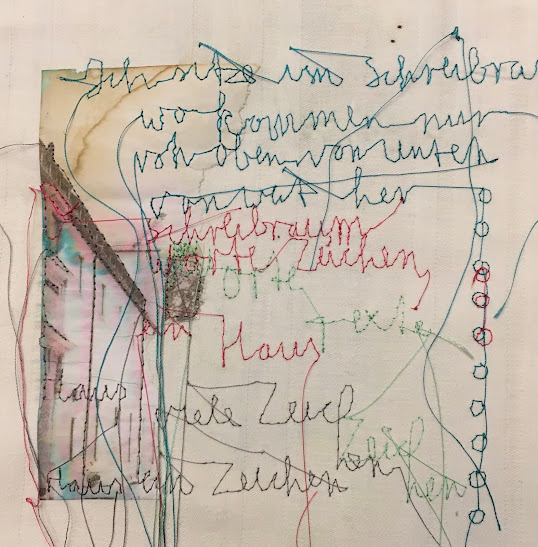 Ich sitze im Schreibrau
wo kommen nur
von oben von unten
von wat her
schreibraum
worte Zeichen
Orte
Texte
ein Haus
Haus viele Zeich
Zeich
nen
Haus ein Zeichen
hen